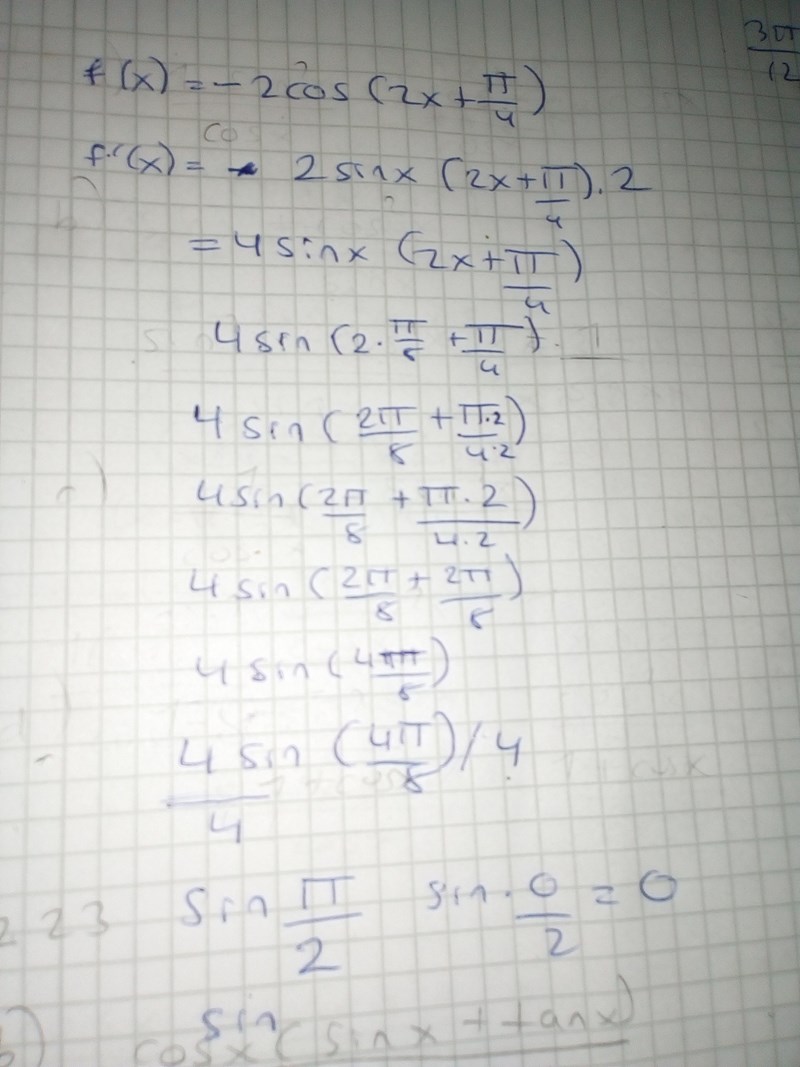 3π/12
f(x) = -2cos(2x+π/4)
co
f'(x) = - 2sinx (2x+π/4).2
= 4sinx (2x+π/4)
4sin(2·π/8 + π/4)
4sin(2π/8 + π·2/4·2)
4sin(2π/8 + π·2/4·2)
4sin(2π/8 + 2π/8)
4sin(4π/8)
4sin(4π/8)/4
4
223 sin π/2 sin·0/2 = 0
sin
b) cosx(sinx + tanx)